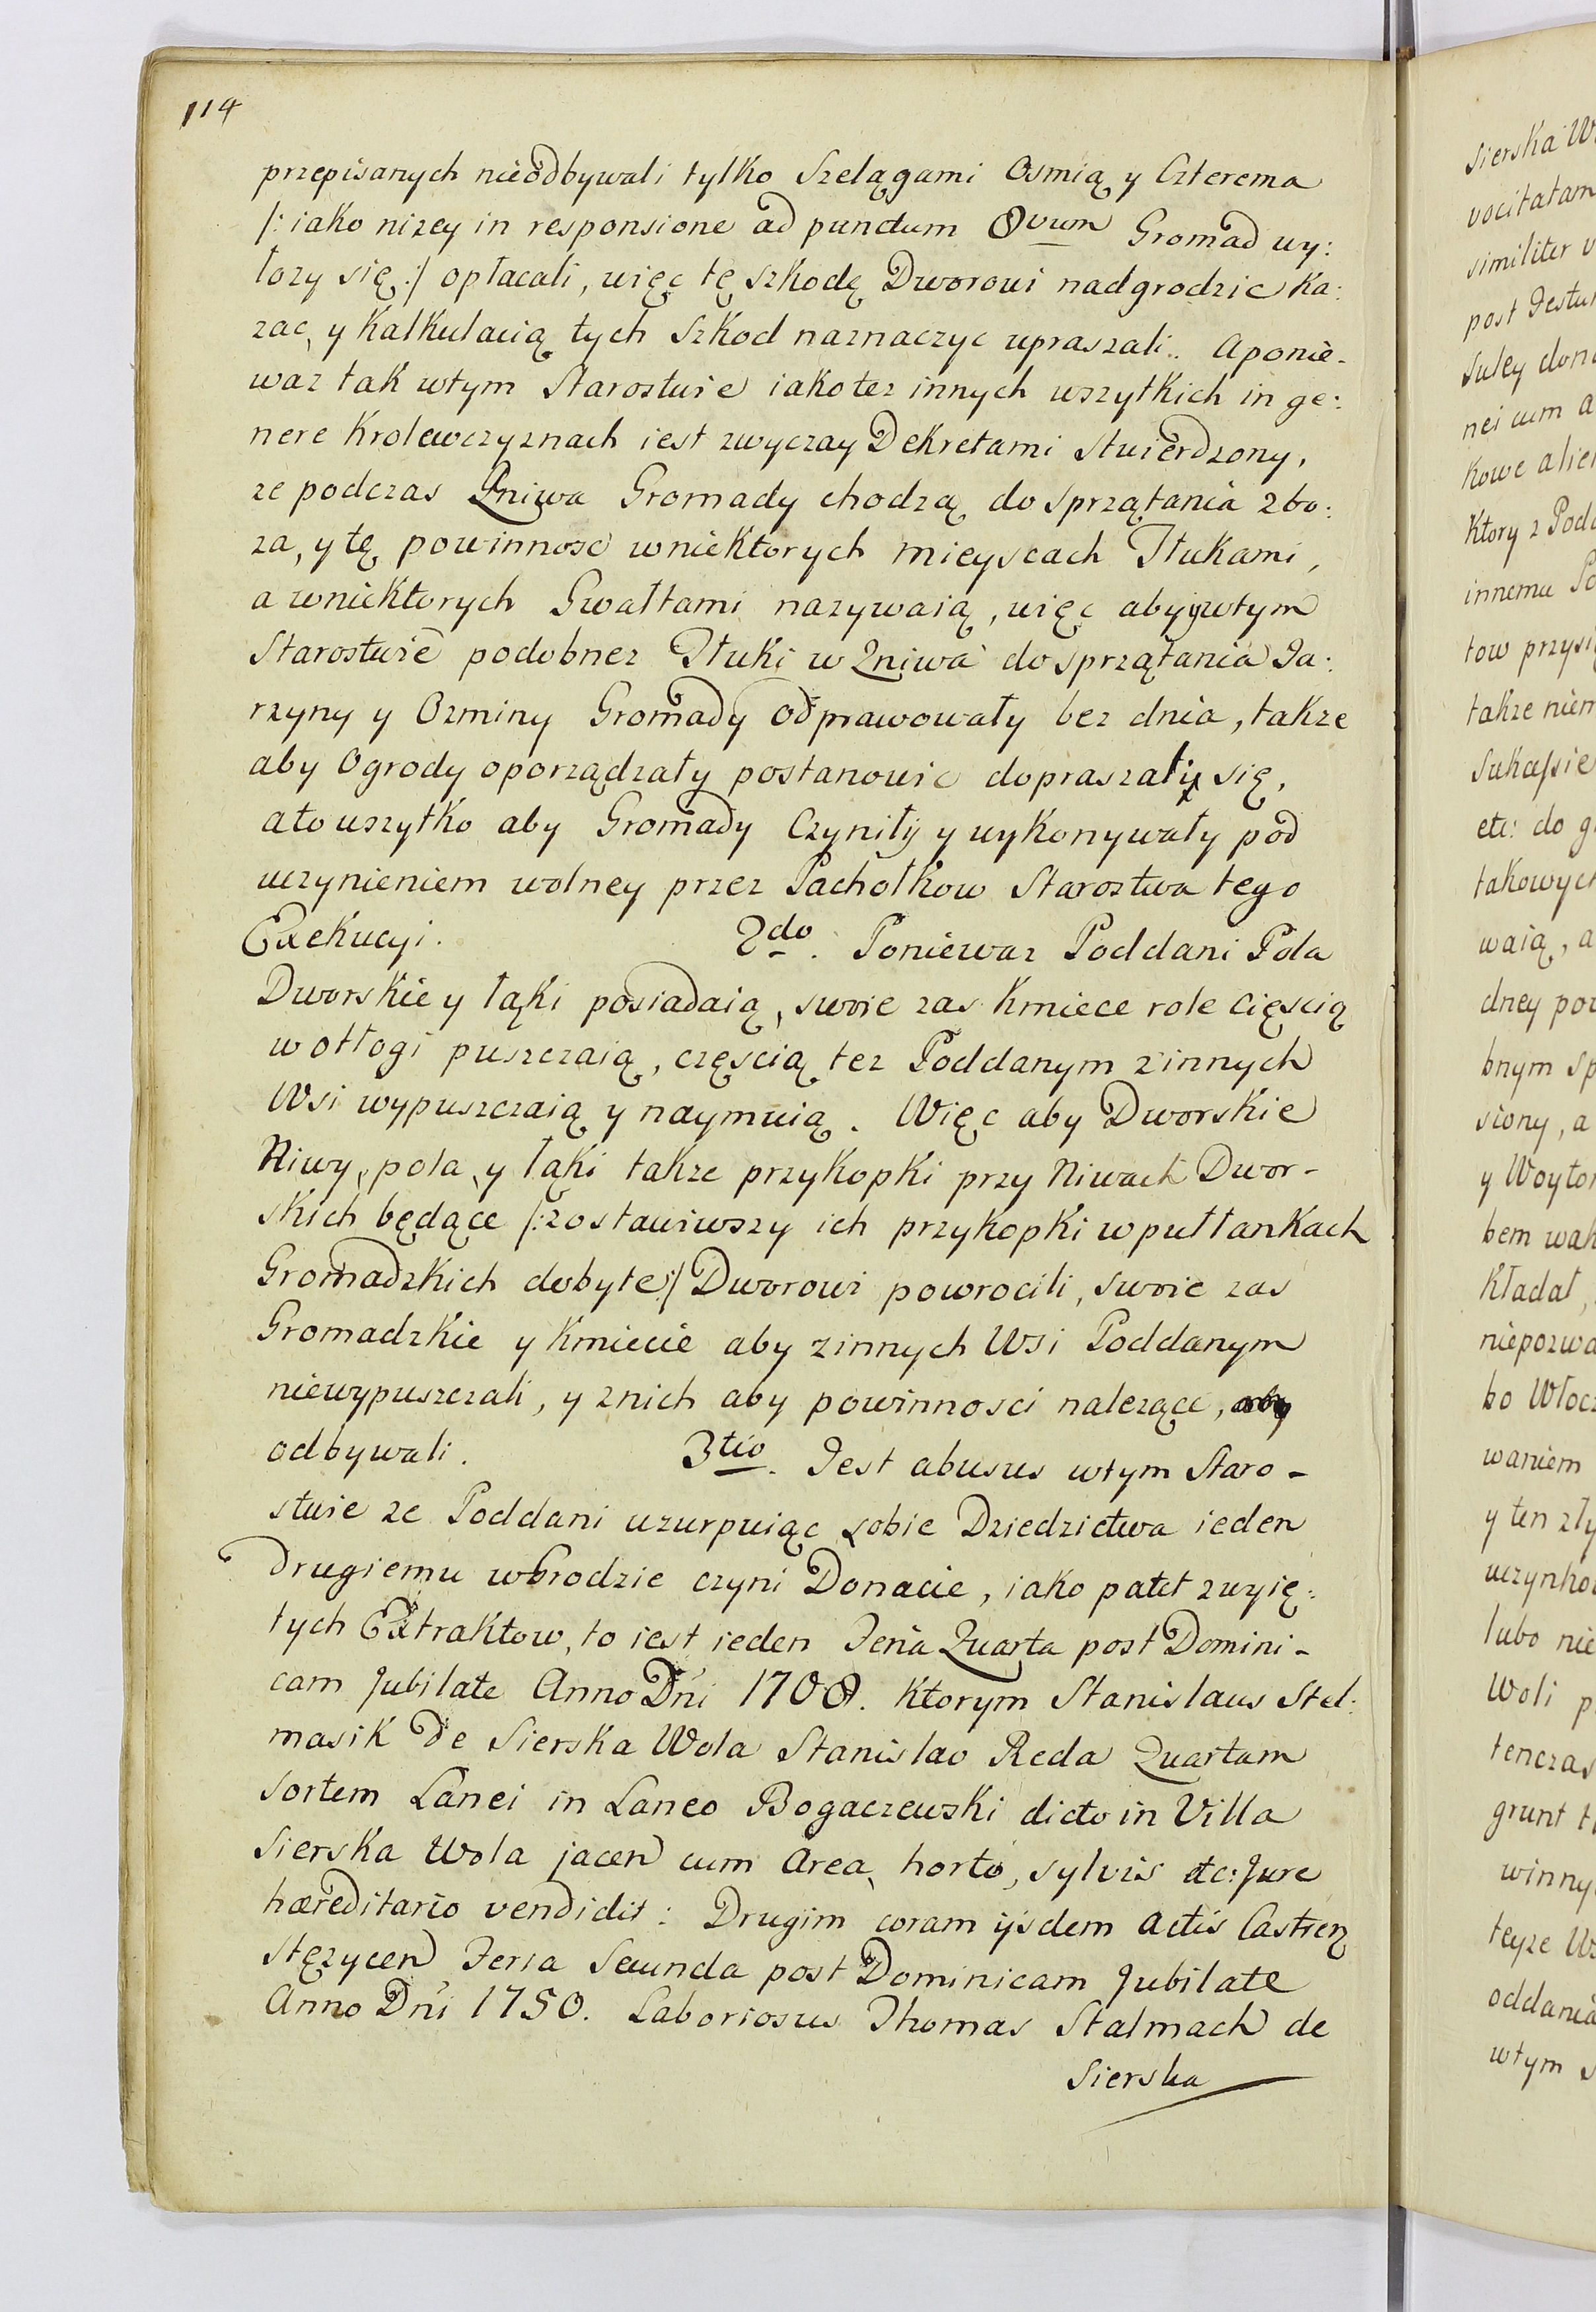 114
przepisanych nieodbywali tylko Szelągami Osmią y Czterema
/: iako nizey in responsione ad punctum 8vum Gromad wy:
łozy się :/ opłacali, więc tę szkodę Dworowi nadgrodzic ka:
zac, y Kalkulacią tych Szkod naznaczyc upraszali. Aponie-
waz tak wtym Starostwie iakotez innych wszytkich in ge:
nere Krolewczyznach iest zwyczay Dekretami stwierdzony,
ze podczas Zniwa Gromady chodzą do sprzątania zbo:
za, y tę powinnosc wniektorych mieyscach Tłukami,
a wniektorych Gwałtami nazywaią, więc aby ywtym
Starostwie podobnez Tłuki w Zniwa do sprzątania Ja:
rzyny y Ozminy Gromady odprawowały bez dnia, takze
aby Ogrody oporządzały postanowic dopraszały się,
ato wszytko aby Gromady Czyniły y wykonywały pod
uczynieniem wolney przez Pachołkow Starostwa tego
Exekucyi. 2do. Poniewaz Poddani Pola
Dworskie y łąki posiadaią, swoie zas Kmiece role cięscią
w otłogi puszczaią, częscią tez Poddanym zinnych
Wsi wypuszczaią y naymuią. Więc aby Dworskie
Niwy, pola, y łąki takze przykopki przy Niwach Dwor-
skich będące /: zostawiwszy ich przykopki w pułłankach
Gromadzkich dobyte :/ Dworowi powrocili, swoie zas
Gromadzkie y Kmiecie aby zinnych Wsi Poddanym
niewypuszczali, y znich aby powinnosci nalezące, aby
odbywali. 3tio. Jest abusus wtym Staro-
stwie ze Poddani uzurpuiąc sobie Dziedzictwa ieden
drugiemu wGrodzie czyni Donacie, iako patet zwyię:
tych Extraktow, to iest ieden Feria Quarta post Domini-
cam Jubilate Anno Dni 1708. Ktorym Stanislaus Stel:
masik de Sierska Wola Stanislao Reda Quartam
sortem Lanei in Laneo Bogaczewski dicto in Villa
Sierska Wola jacen cum Area, horto, sylvis etc: Jure
hæreditario vendidit: Drugim coram ijsdem Actis Castren
Stęzycen Feria Secunda post Dominicam Jubilate
Anno Dni 1750. Laboriosus Thomas Stalmach de
Sierska
Sierska W
vocitatam
similiter v
post Festu
Suley don
nei cum a
kowe alie
Ktory z Pod
innemu Po
tow przysi
takze niem
Sukassie
etc: do g
takowych
waią, a
dney pow
bnym sp
siony, a
y Woyto
bem wak
Kładał,
niepozwa
bo Włocz
waniem
y ten zły
uczynko
lubo nie
Woli p
tenczas
grunt t
winny
teyze W
oddania
wtym s